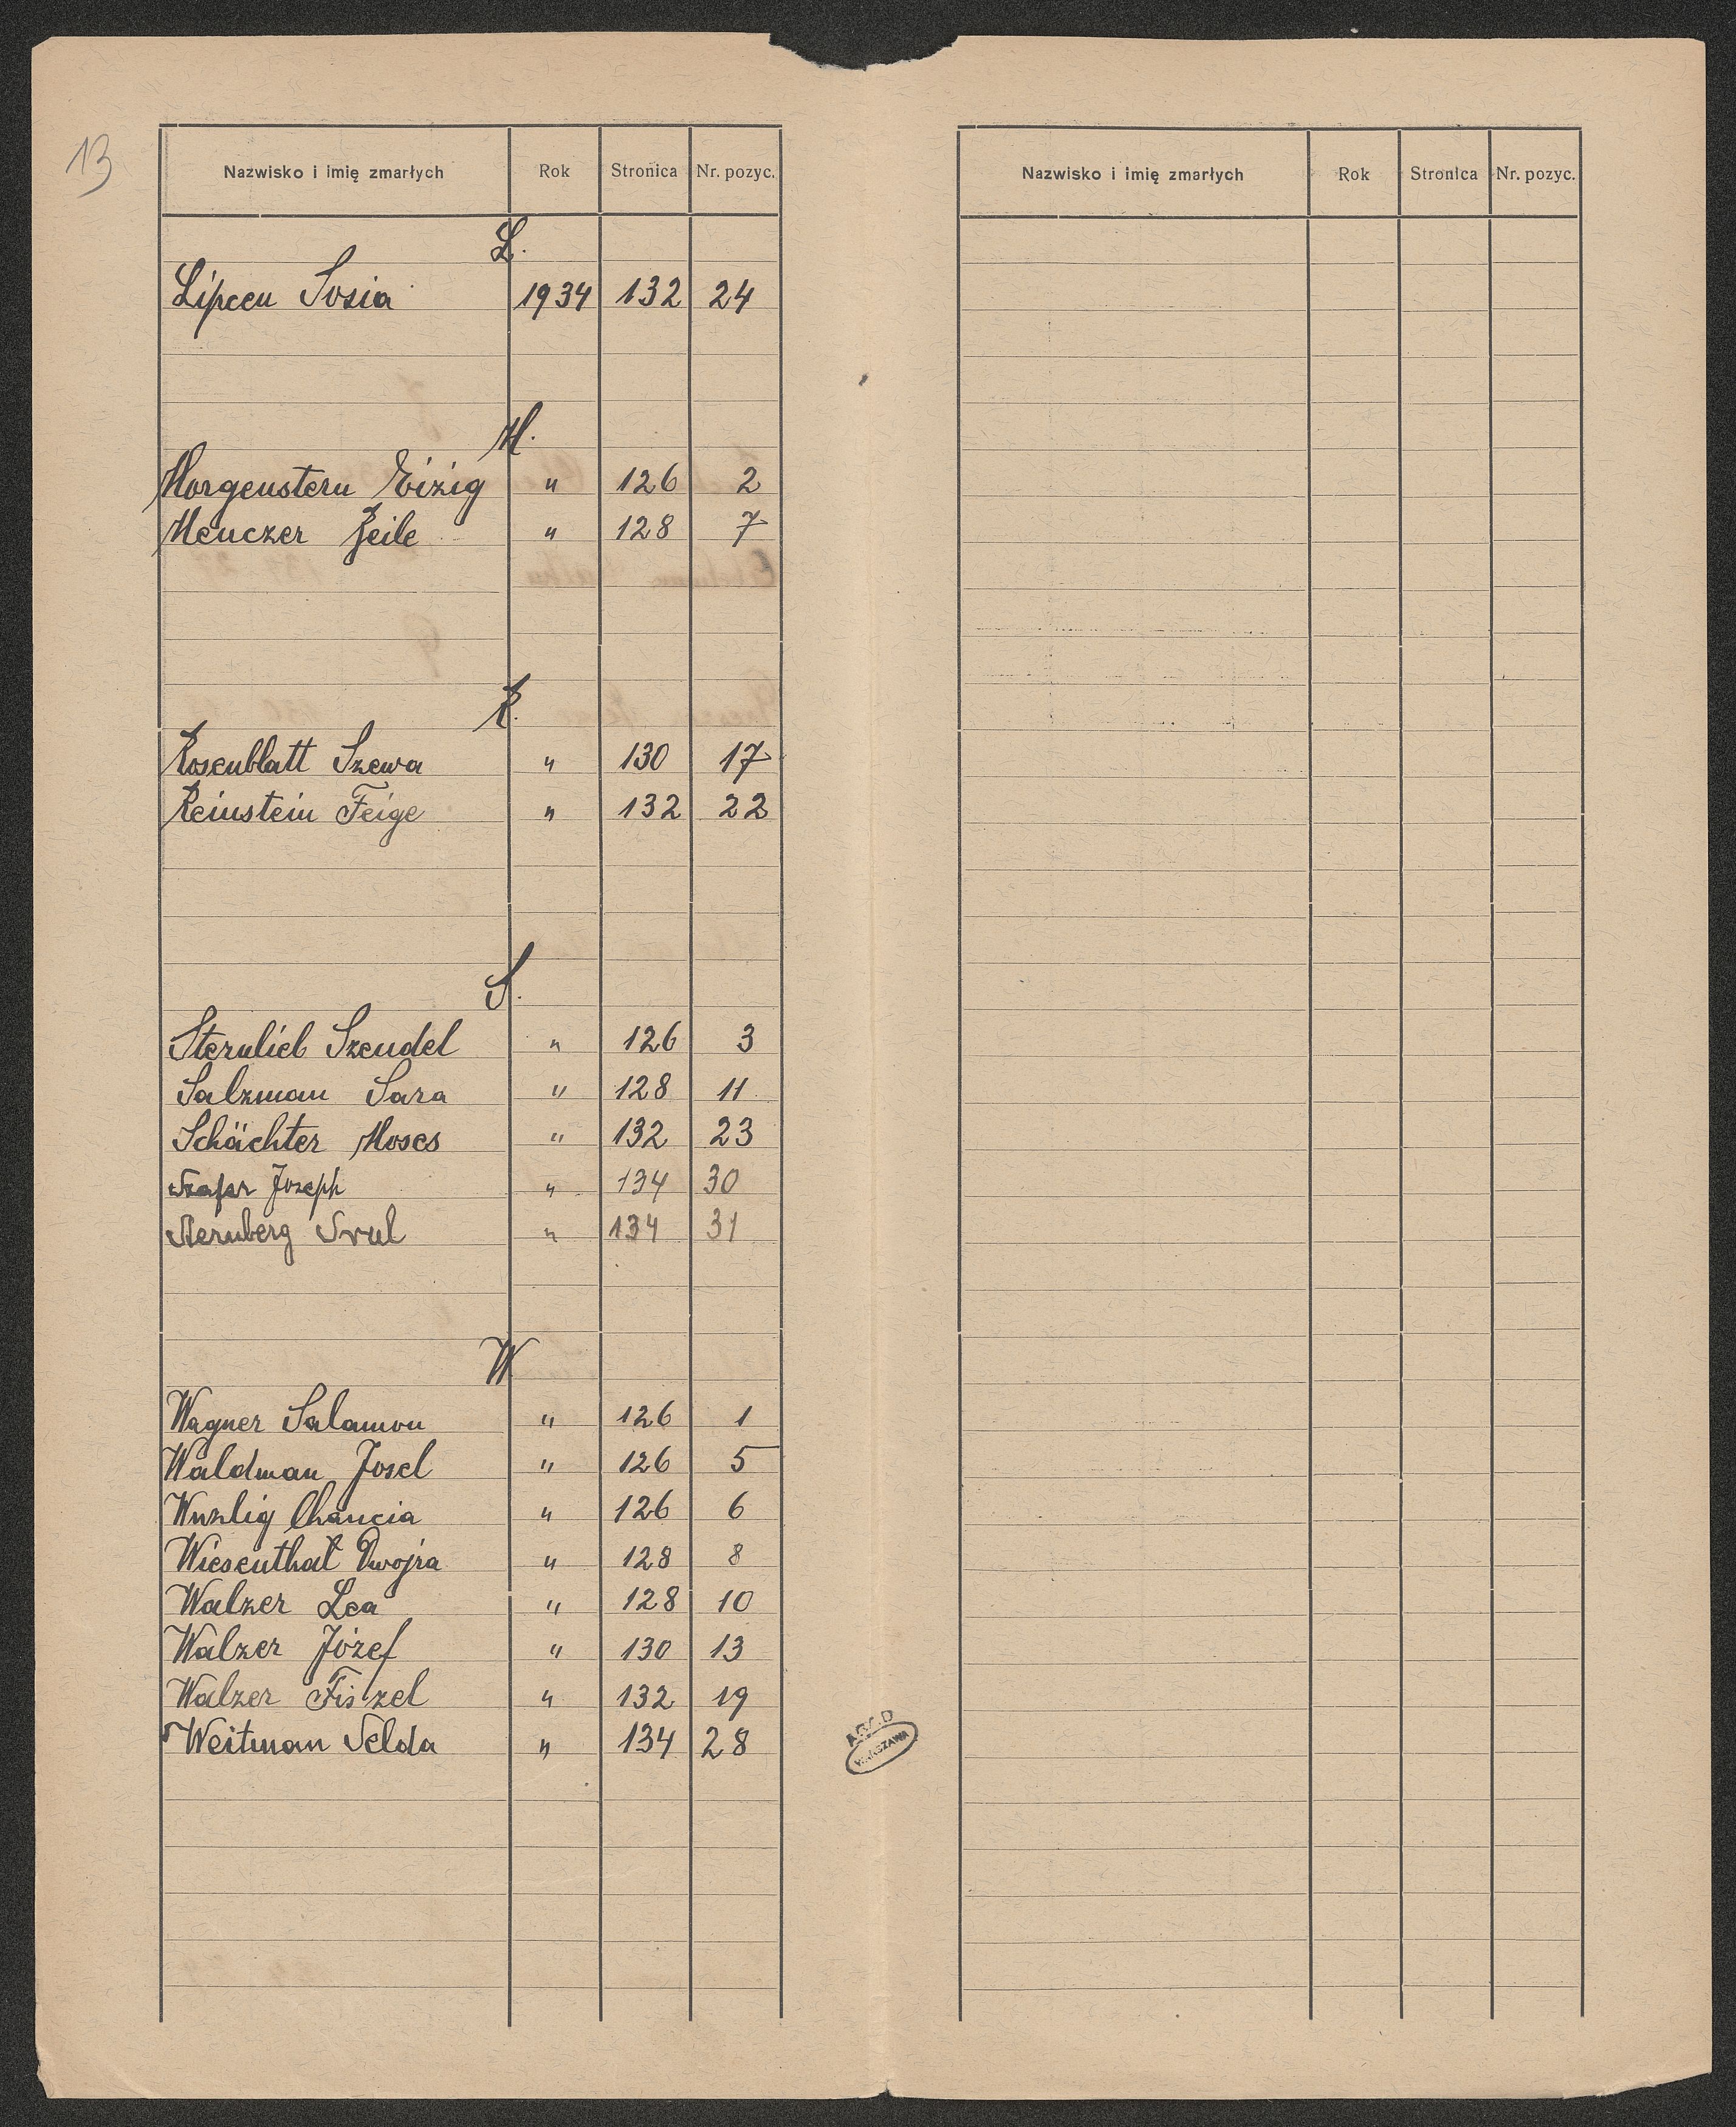 13
Nazwisko i imię zmarłych Rok Stronica Nr. pozyc.
L.
Lipcen Sosia 1934 132 24
M.
Morgenstern Eizig " 126 2
Menczer Reile " 128 7
R.
Rosenblatt Szewa " 130 17
Reinstein Feige " 132 22
S.
Sternlieb Szendel " 126 3
Salzman Sara " 128 11
Schächter Moses " 132 23
Szafer Joseph " 134 30
Sternberg Srul " 134 31
W
Wagner Salamon " 126 1
Waldman Josel " 126 5
Wuzlig Chancia " 126 6
Wiesenthal Dwojra " 128 8
Walzer Lea " 128 10
Walzer Józef " 130 13
Walzer Fiszel " 132 19
Weitman Selda " 134 28
Nazwisko i imię zmarłych Rok Stronica Nr. pozyc.
AGAD
WARSZAWA